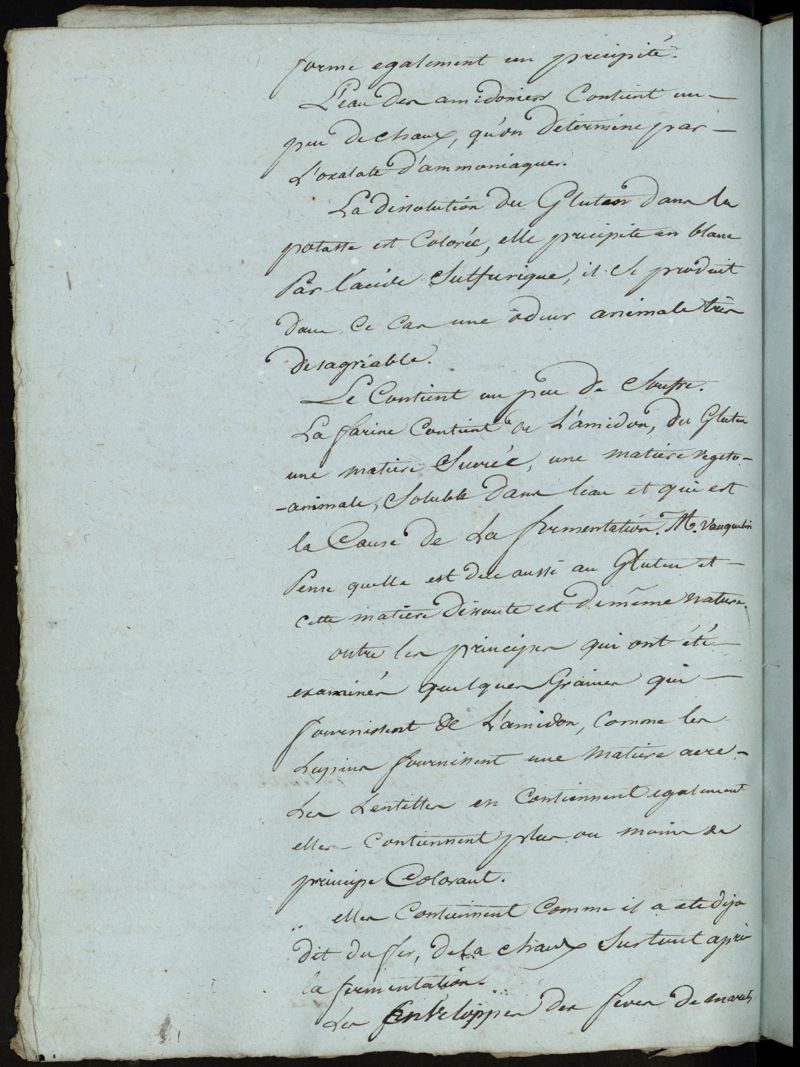 forme egalement un précipité.
L'eau des amidoniers Contient un
peu de chaux, qu'on détermine par
L'oxalate d'ammoniaque.
La dissolution du Gluten dans la
potasse est Colorée, elle précipite en blanc
Par l'acide Sulfurique, il se produit
dans ce Cas une odeur animale très
desagréable.
Le Contient un peu de Soufre.
La farine Contient de L'amidon, du Gluten
une matière Sucrée, une matière vegeto-
-animale, Soluble dans l'eau et qui est
la Cause de la fermentation. M. Vauquelin
Pense quelle est due aussi au Gluten et
Cette matière dissoute est de même nature.
outre les principes qui ont été
examinés quelques Graines qui
fournissent de L'amidon, comme les
Lupins fournissent une matière acre
Les Lentilles en Contiennent egalement
elles Contiennent plus ou moins de
principe Colorant.
elles Contiennent Comme il a ete deja
dit du fer, de la chaux surtout après
la fermentation.
Les Enveloppes des feves de marais